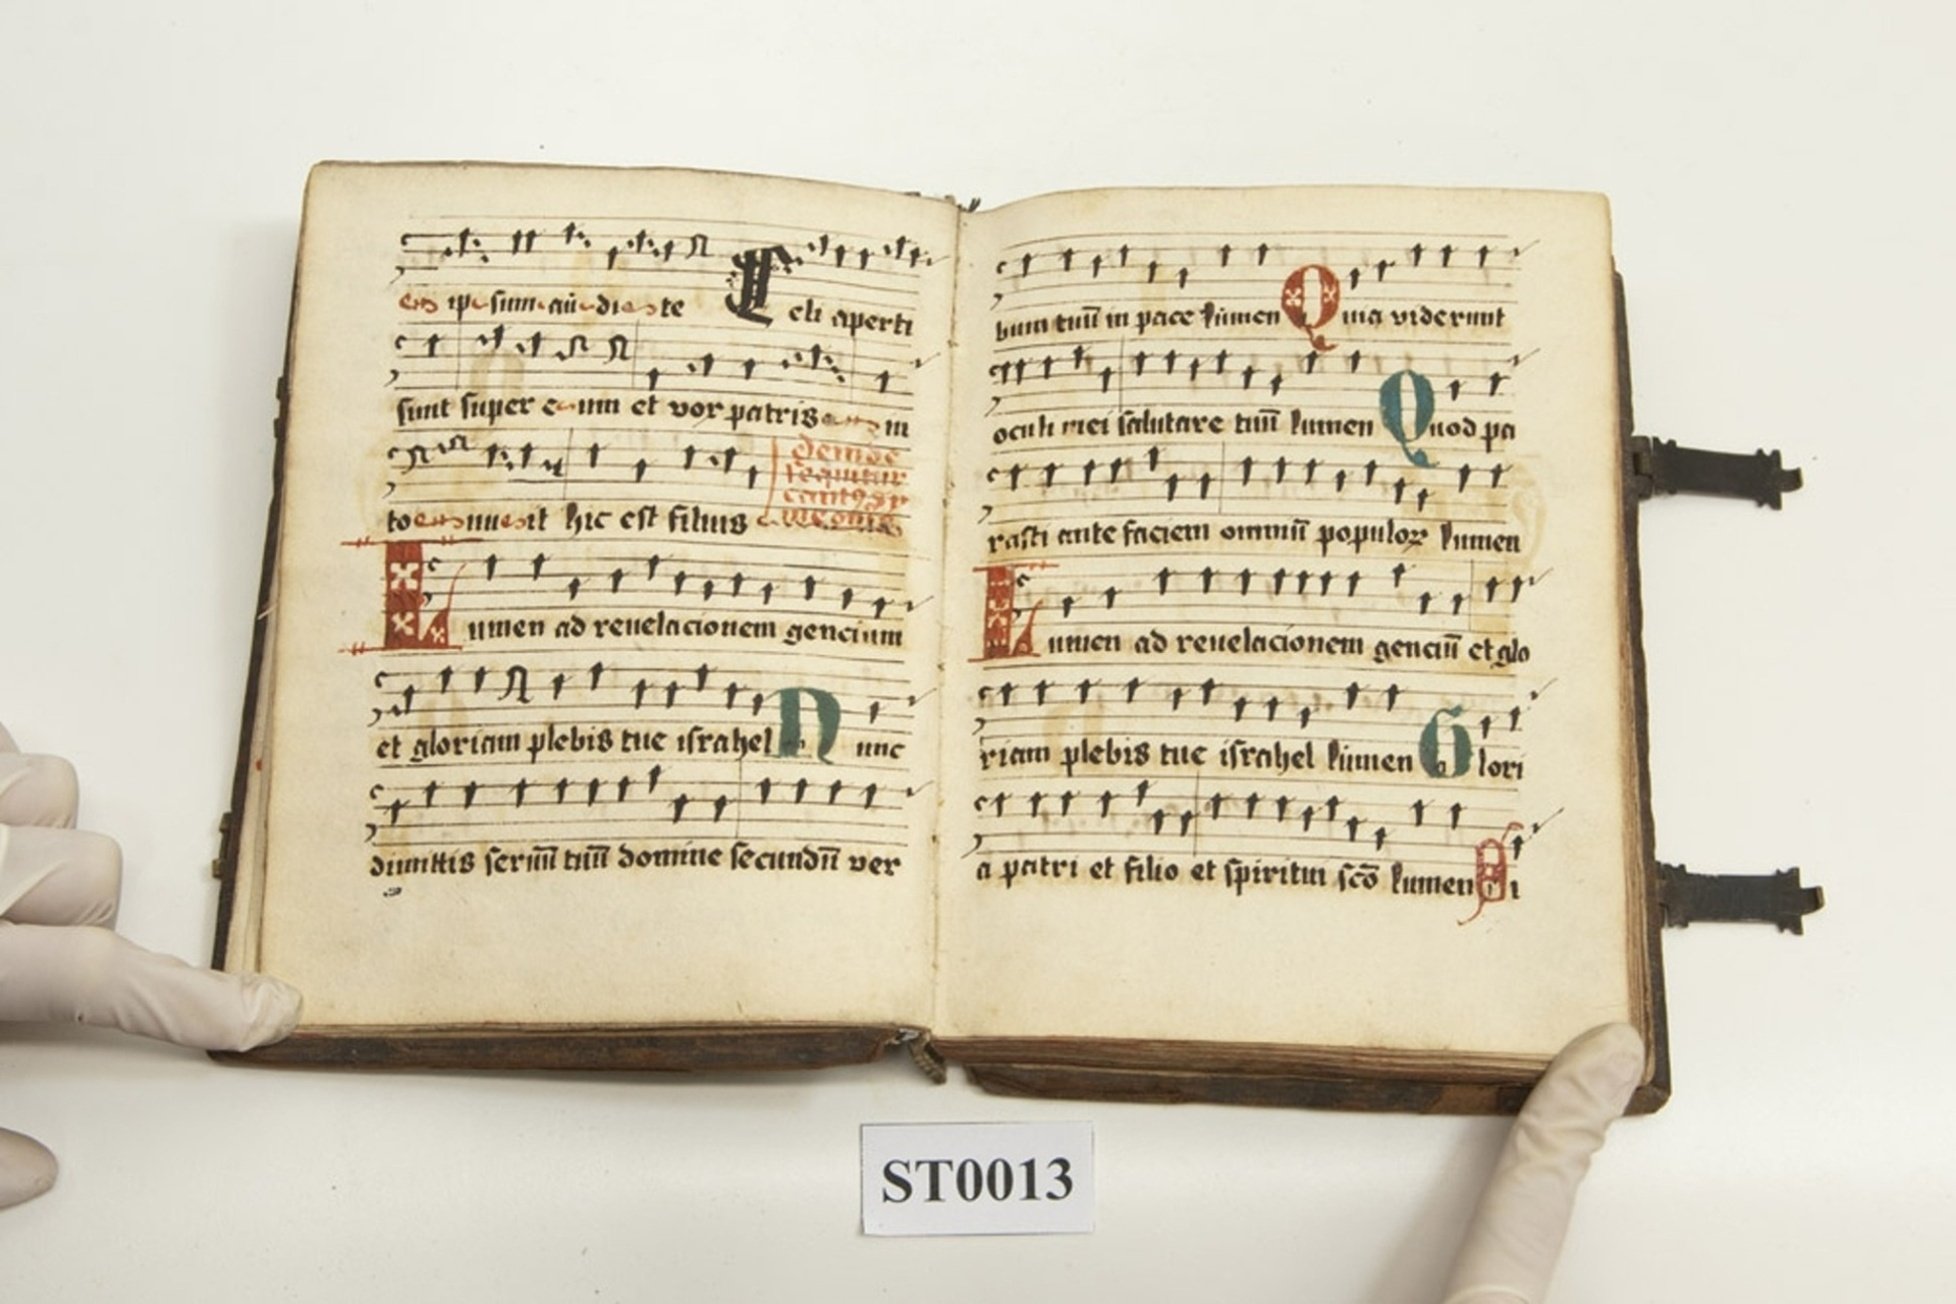 ipsum audite Celi aperti
sunt super eum et vox patris in
to nuit hic est filius
deinde
sequitur
Lumen ad reuelacionem gencium
et gloriam plebis tue israhel Nunc
dimittis seruū tuū domine secundū ver
bum tuū in pace lumen Quia viderunt
oculi mei salutare tuū lumen Quod pa
rasti ante faciem omniū populoꝝ lumen
Lumen ad reuelacionem genciū et glo
riam plebis tue israhel lumen Glori
a patri et filio et spiritui scō lumen Si
ST0013